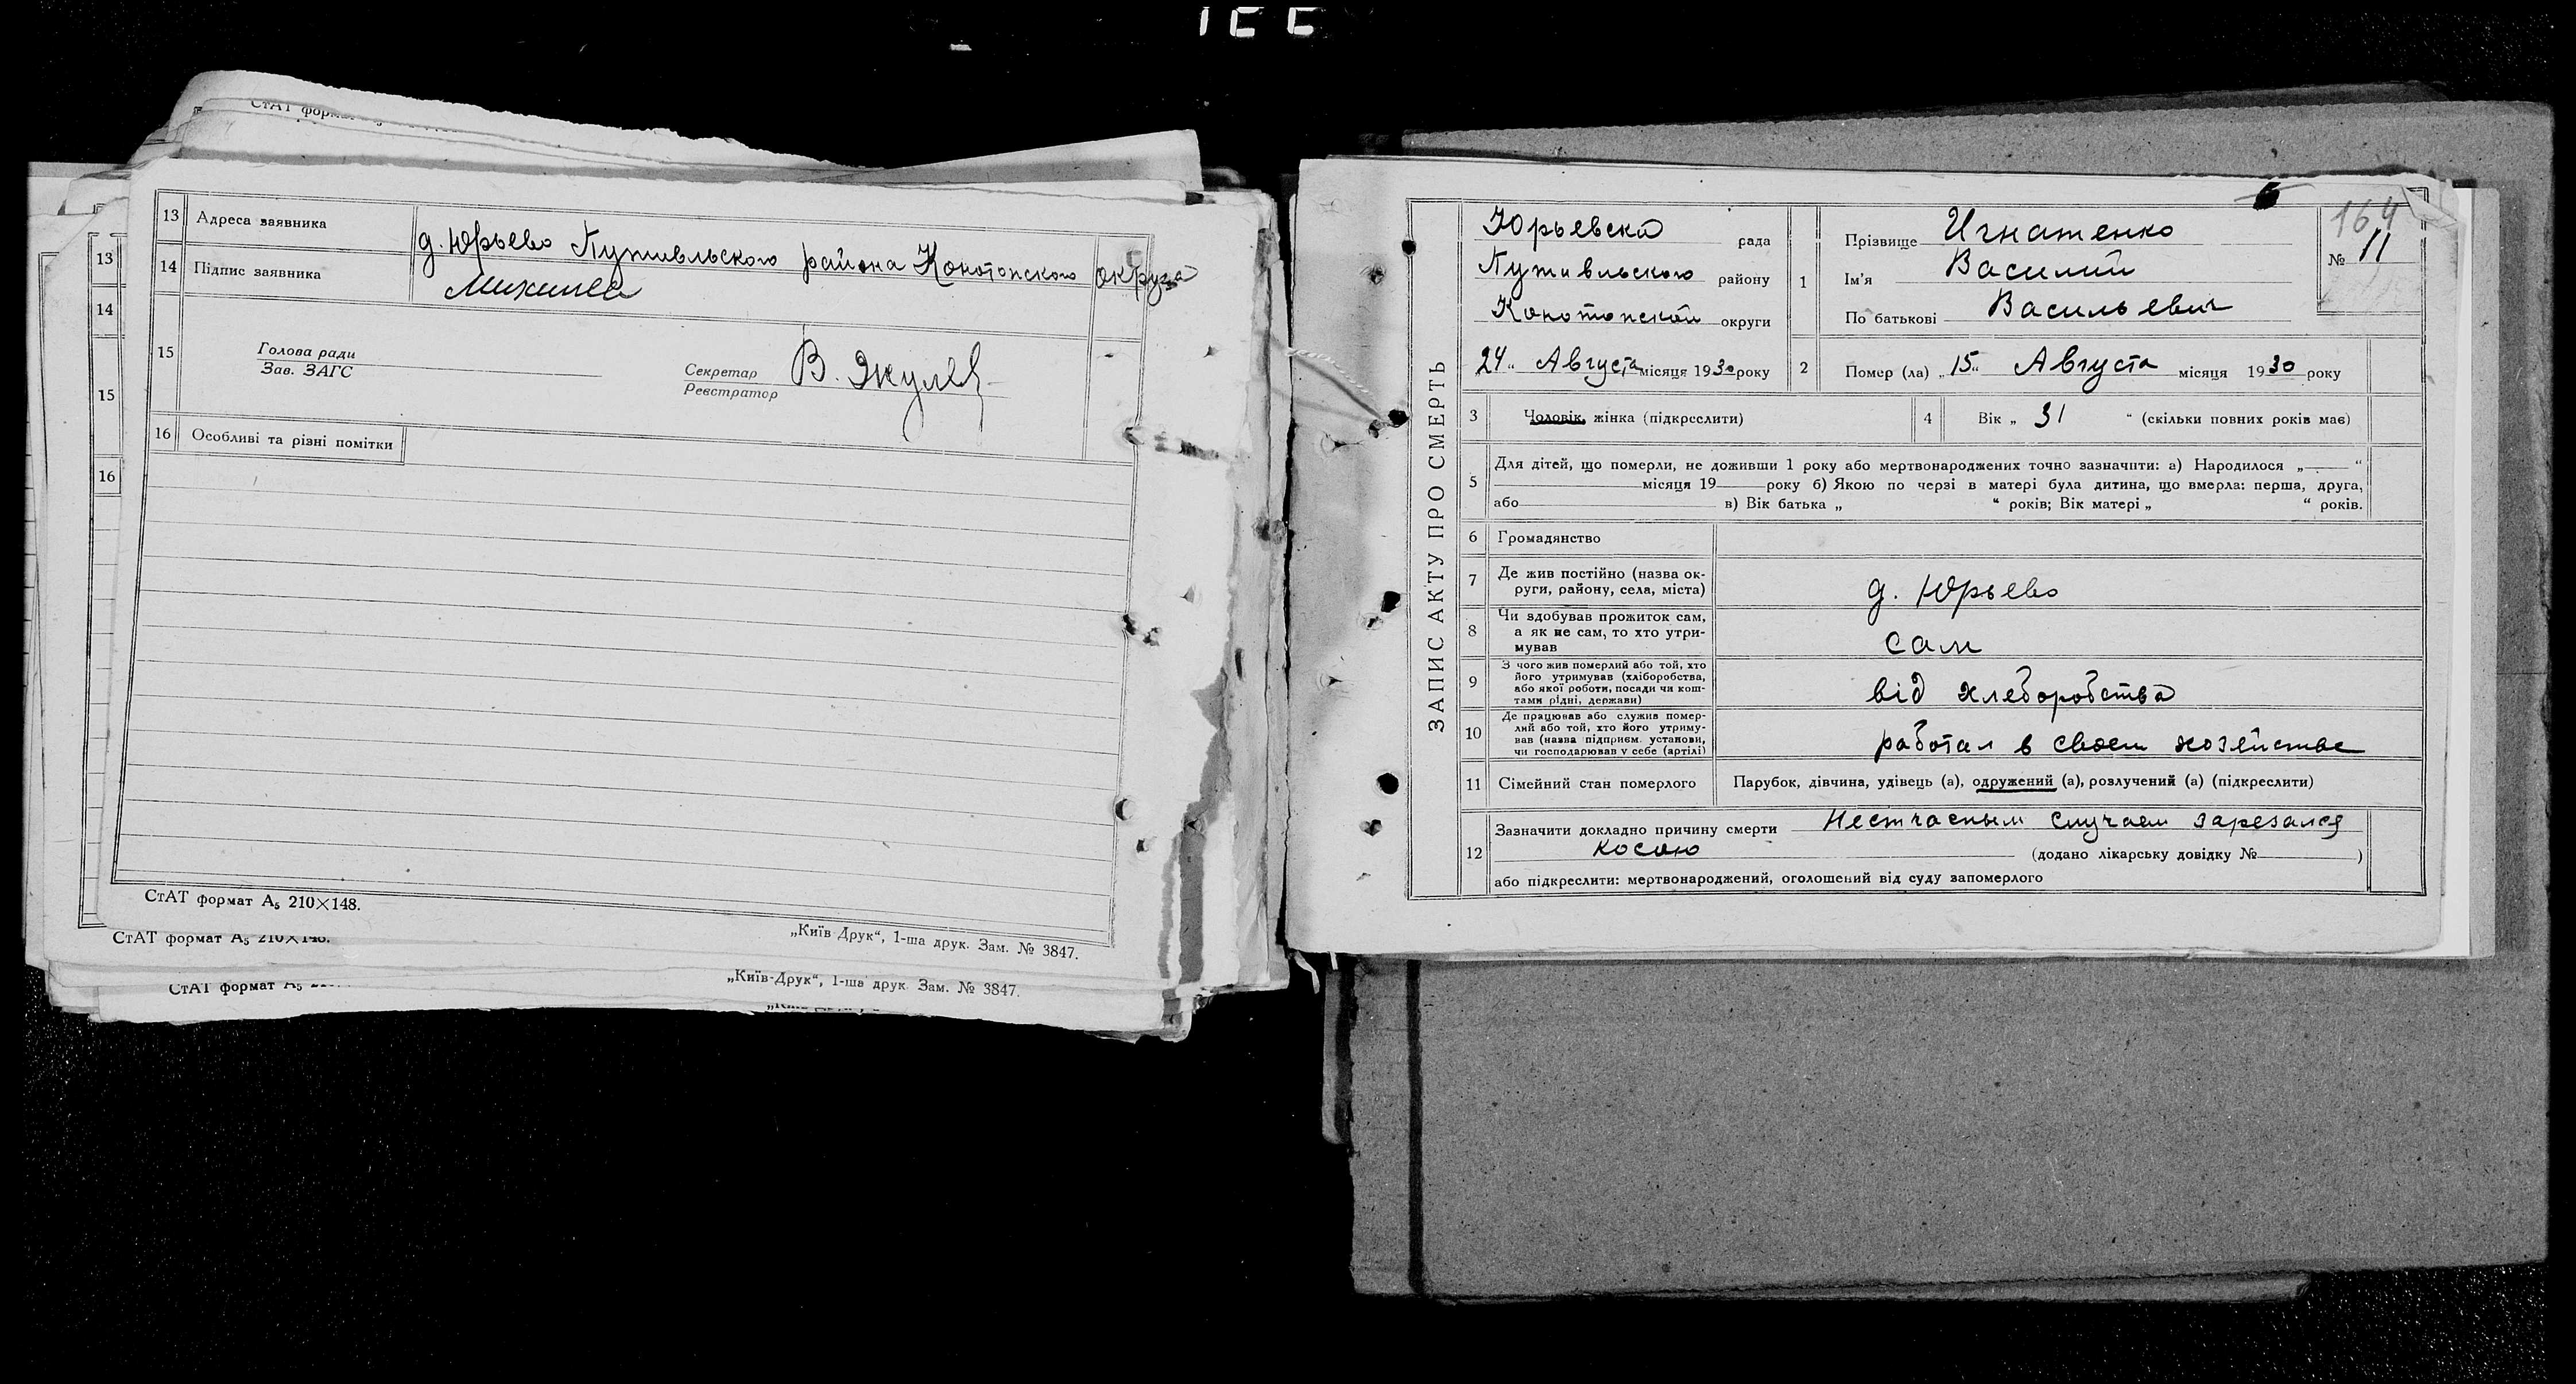 СтАТ форм
13 Адреса заявника д. Юрьево Путивльского района Конотопского округа
14 Підпис заявника
15 Голова ради
Зав. ЗАГС
Секретар
Реєстратор
16 Особливі та різні помітки
СтАТ формат А₅ 210×148.
„Київ-Друк“, 1-ша друк. Зам. № 3847.
13
14
15
16
СтАТ формат А₅ 210×148.
„Київ-Друк“, 1-ша друк. Зам. № 3847.
СтАТ формат А₅
ЗАПИС АКТУ ПРО СМЕРТЬ
Юрьевска рада
Путивльского району
Конотопской округи
„24“ Августа місяця 1930 року
164
№ 11
1 Прізвище Игнатенко
Ім’я Василий
По батькові Васильевич
2 Помер (ла) „15“ Августа місяця 1930 року
3 Чоловік, жінка (підкреслити)
4 Вік „ 31 “ (скільки повних років має)
5 Для дітей, що померли, не доживши 1 року або мертвонароджених точно зазначити: а) Народилося „ “
місяця 19 року б) Якою по черзі в матері була дитина, що вмерла: перша, друга,
або в) Вік батька „ “ років; Вік матері „ “ років.
6 Громадянство
7 Де жив постійно (назва ок-
руги, району, села, міста) д. Юрьево
8 Чи здобував прожиток сам,
а як не сам, то хто утри-
мував сам
9 З чого жив померлий або той, хто
його утримував (хліборобства,
або якої роботи, посади чи кош-
тами рідні, держави) від хлеборобства
10 Де працював або служив помер-
лий або той, хто його утриму-
вав (назва підприєм. установи,
чи господарював у себе (артілі) работал в своем хозействе
11 Сімейний стан померлого Парубок, дівчина, удівець (а), одружений (а), розлучений (а) (підкреслити)
12 Зазначити докладно причину смерти Нестчасным случаем зарезался
косою (додано лікарську довідку № )
або підкреслити: мертвонароджений, оголошений від суду запомерлого